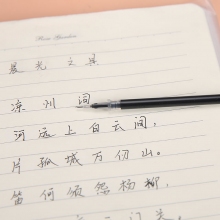 晨光 文具
凉州词
河远上白云间，
片孤城万仞山。
笛何须怨杨柳，
门关